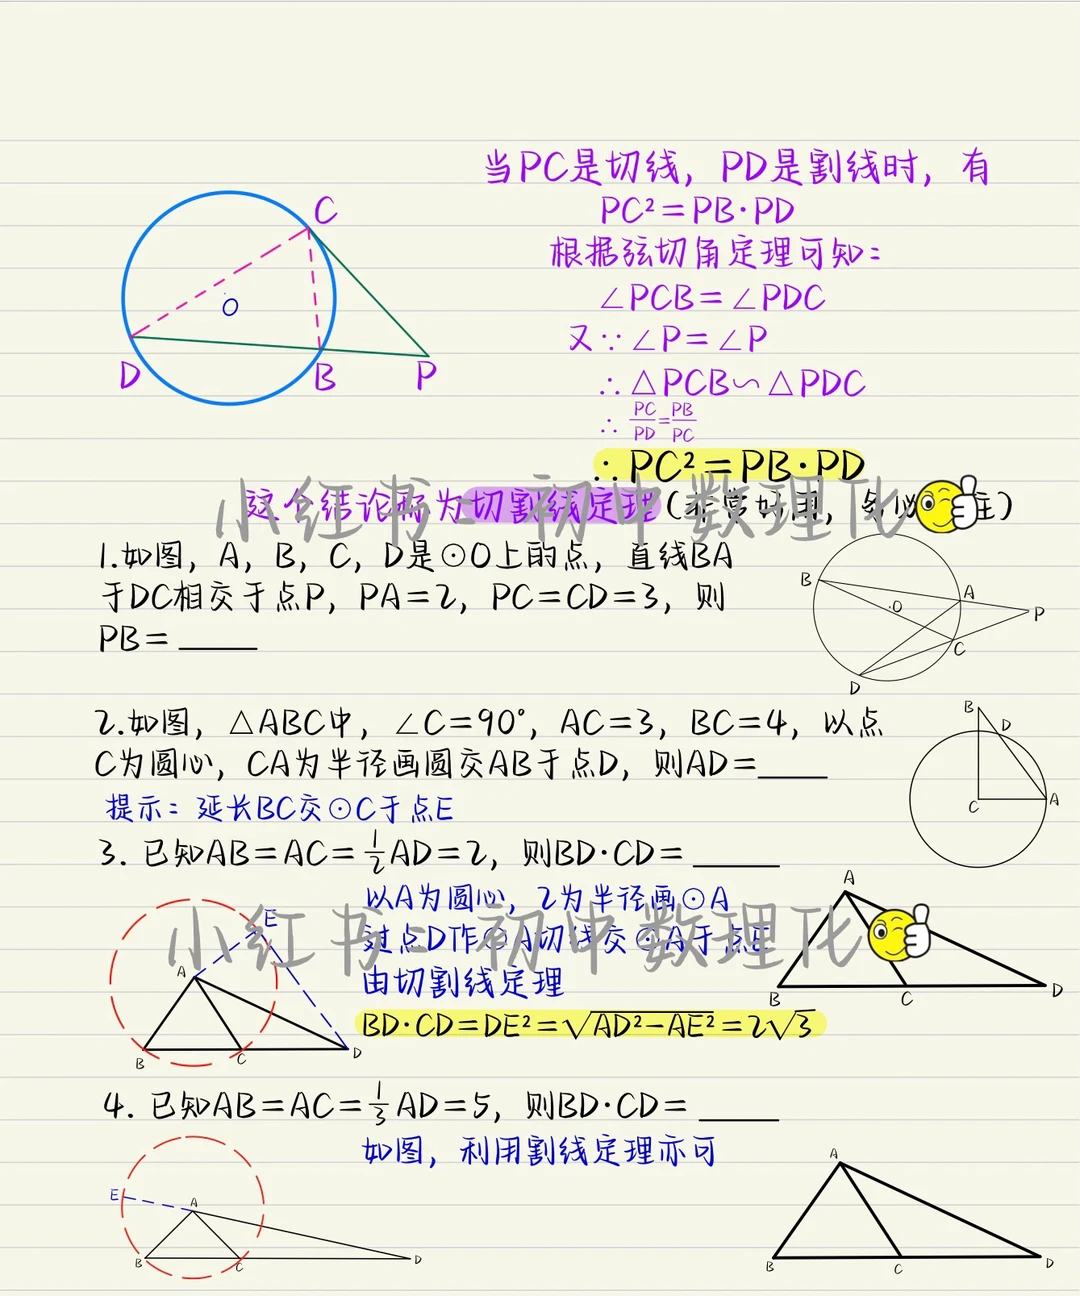 当PC是切线，PD是割线时，有
PC²=PB·PD
根据弦切角定理可知：
∠PCB=∠PDC
又∵∠P=∠P
∴△PCB∽△PDC
∴ PC/PD=PB/PC
∴PC²=PB·PD
C
O
D
B
P
这个结论称为切割线定理(非常好用，务必 注)
小红书：初中数理化
1.如图，A，B，C，D是⊙O上的点，直线BA
于DC相交于点P，PA=2，PC=CD=3，则
PB=____
B
O
A
P
C
D
2.如图，△ABC中，∠C=90°，AC=3，BC=4，以点
C为圆心，CA为半径画圆交AB于点D，则AD=____
提示：延长BC交⊙C于点E
B
D
C
A
3. 已知AB=AC=1/2AD=2，则BD·CD=____
以A为圆心，2为半径画⊙A
过点D作⊙A切线交⊙A于点E
由切割线定理
BD·CD=DE²=√AD²-AE²=2√3
小红书：初中数理化
E
A
B
C
D
A
B
C
D
4. 已知AB=AC=1/3AD=5，则BD·CD=____
如图，利用割线定理亦可
E
A
B
C
D
A
B
C
D